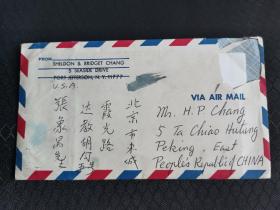 FROM
SHELDON & BRIDGET CHANG
5 MADER DRIVE
PORT JEFFERSON, N.Y. 11777
U.S.A.
VIA AIR MAIL
北京市东城
霞光路
达教胡同
五号
張象昺先生
Mr. H. P. Chang
5 Ta Chiao Hutung
Peking, East
People's Republic of CHINA